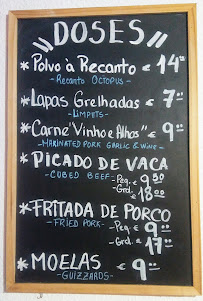 "DOSES"
* Polvo à Recanto € 14⁰⁰
- Recanto Octopus -
* Lapas Grelhadas € 7⁰⁰
- Limpets -
* Carne "Vinho e Alhos" € 9⁰⁰
- Marinated Pork Garlic & Wine -
* PICADO DE VACA
- CUBED BEEF - Peq. € 9⁵⁰
- Grd. € 18⁰⁰
* FRITADA DE PORCO
- FRIED PORK - Peq € 9⁰⁰
- Grd. € 17⁰⁰
* MOELAS € 9⁰⁰
- GUIZZARDS -